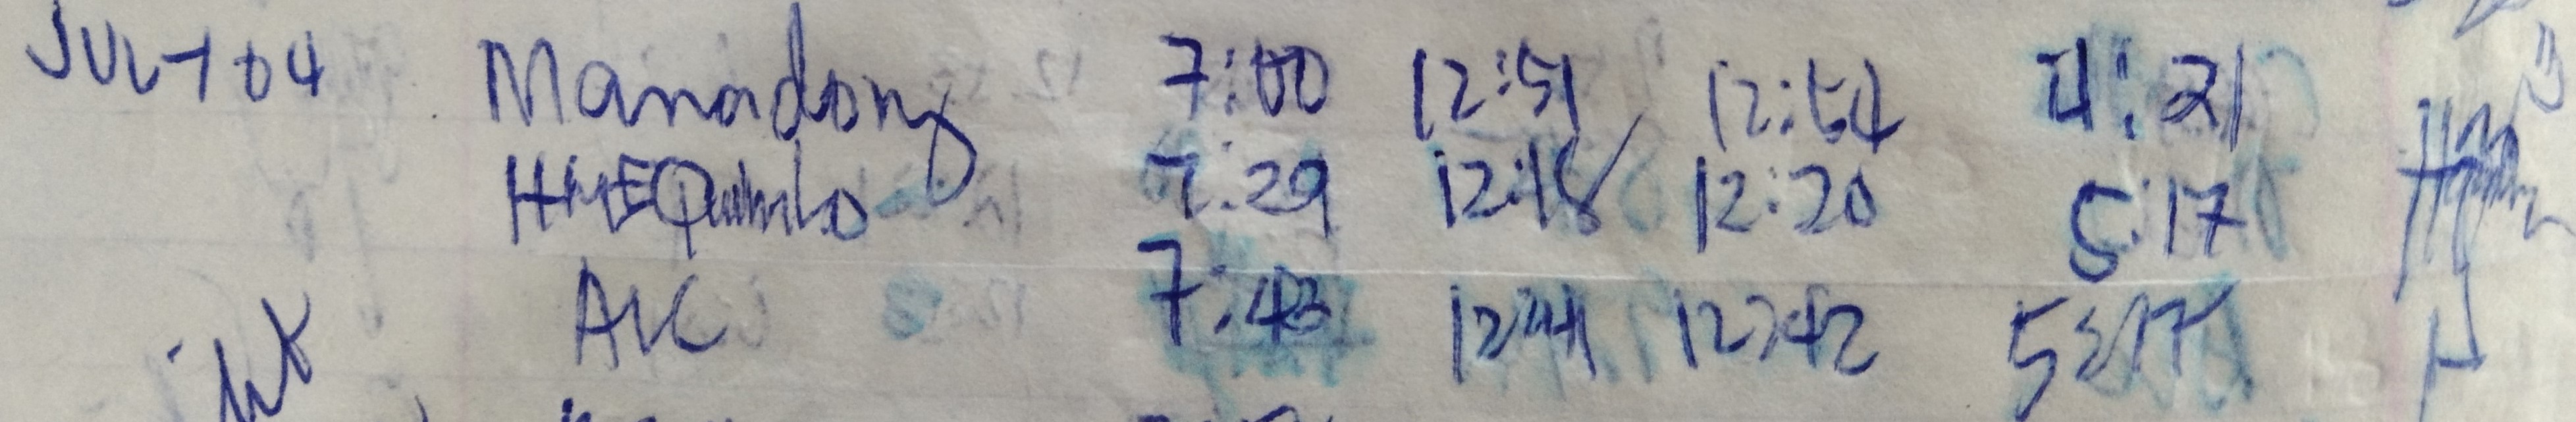 JULY 04 Manadong 7:00 12:51 12:54 4:21
HMEQuimlo 7:29 12:18 12:20 5:17
AVC 7:43 12:41 12:42 5:17